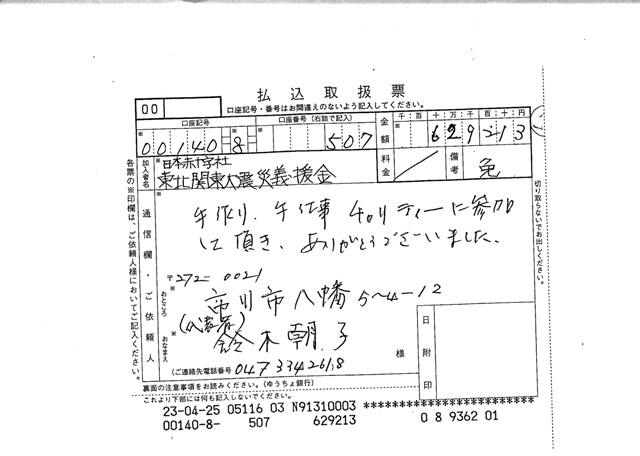 払込取扱票
00
口座記号・番号はお間違えのないよう記入してください。
口座記号 口座番号(右詰で記入) 金額 千 百 十 万 千 百 十 円
00140 8 507 629213
加入者名 日本赤十字社 料金 備考 免
東北関東大震災義援金
各票の※印欄は、ご依頼人様においてご記入ください。
切り取らないでお出しください。
通信欄・ご依頼人
手作り、手仕事 チャリティーに参加
して頂き、ありがとうございました。
〒272-0021
おところ 市川市八幡5-4-12
おなまえ 鈴木朝子
様
日附印
(ご連絡先電話番号 0473342618
裏面の注意事項をお読みください。(ゆうちょ銀行)
これより下部には何も記入しないでください。
23-04-25 05116 03 N91310003 *******************
00140-8- 507 629213 0 8 9362 01